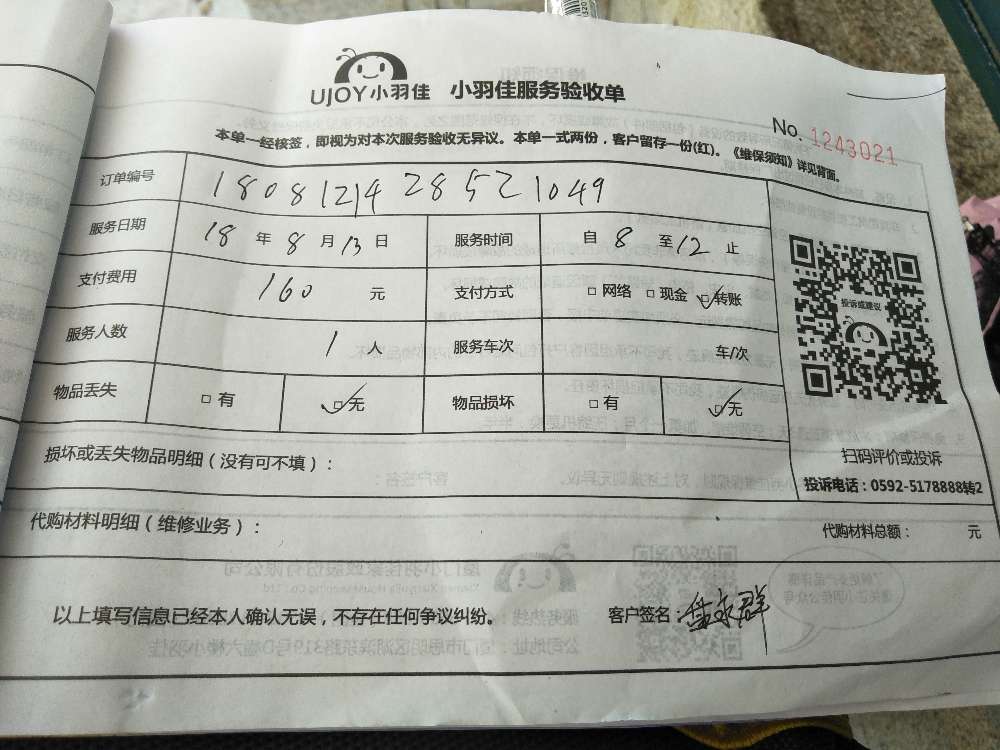 UJOY小羽佳 小羽佳服务验收单
No. 1243021
本单一经核签，即视为对本次服务验收无异议。本单一式两份，客户留存一份(红)。《维保须知》详见背面。
订单编号 1808121428521049
服务日期 18 年 8 月 13 日 服务时间 自 8 至 12 止
支付费用 160 元 支付方式 □ 网络 □ 现金 ☑ 转账
服务人数 1 人 服务车次 车/次
物品丢失 □ 有 ☑ 无 物品损坏 □ 有 ☑ 无
投诉或建议
扫码评价或投诉
投诉电话：0592-5178888转2
损坏或丢失物品明细（没有可不填）：
代购材料明细（维修业务）： 代购材料总额： 元
以上填写信息已经本人确认无误，不存在任何争议纠纷。 客户签名：